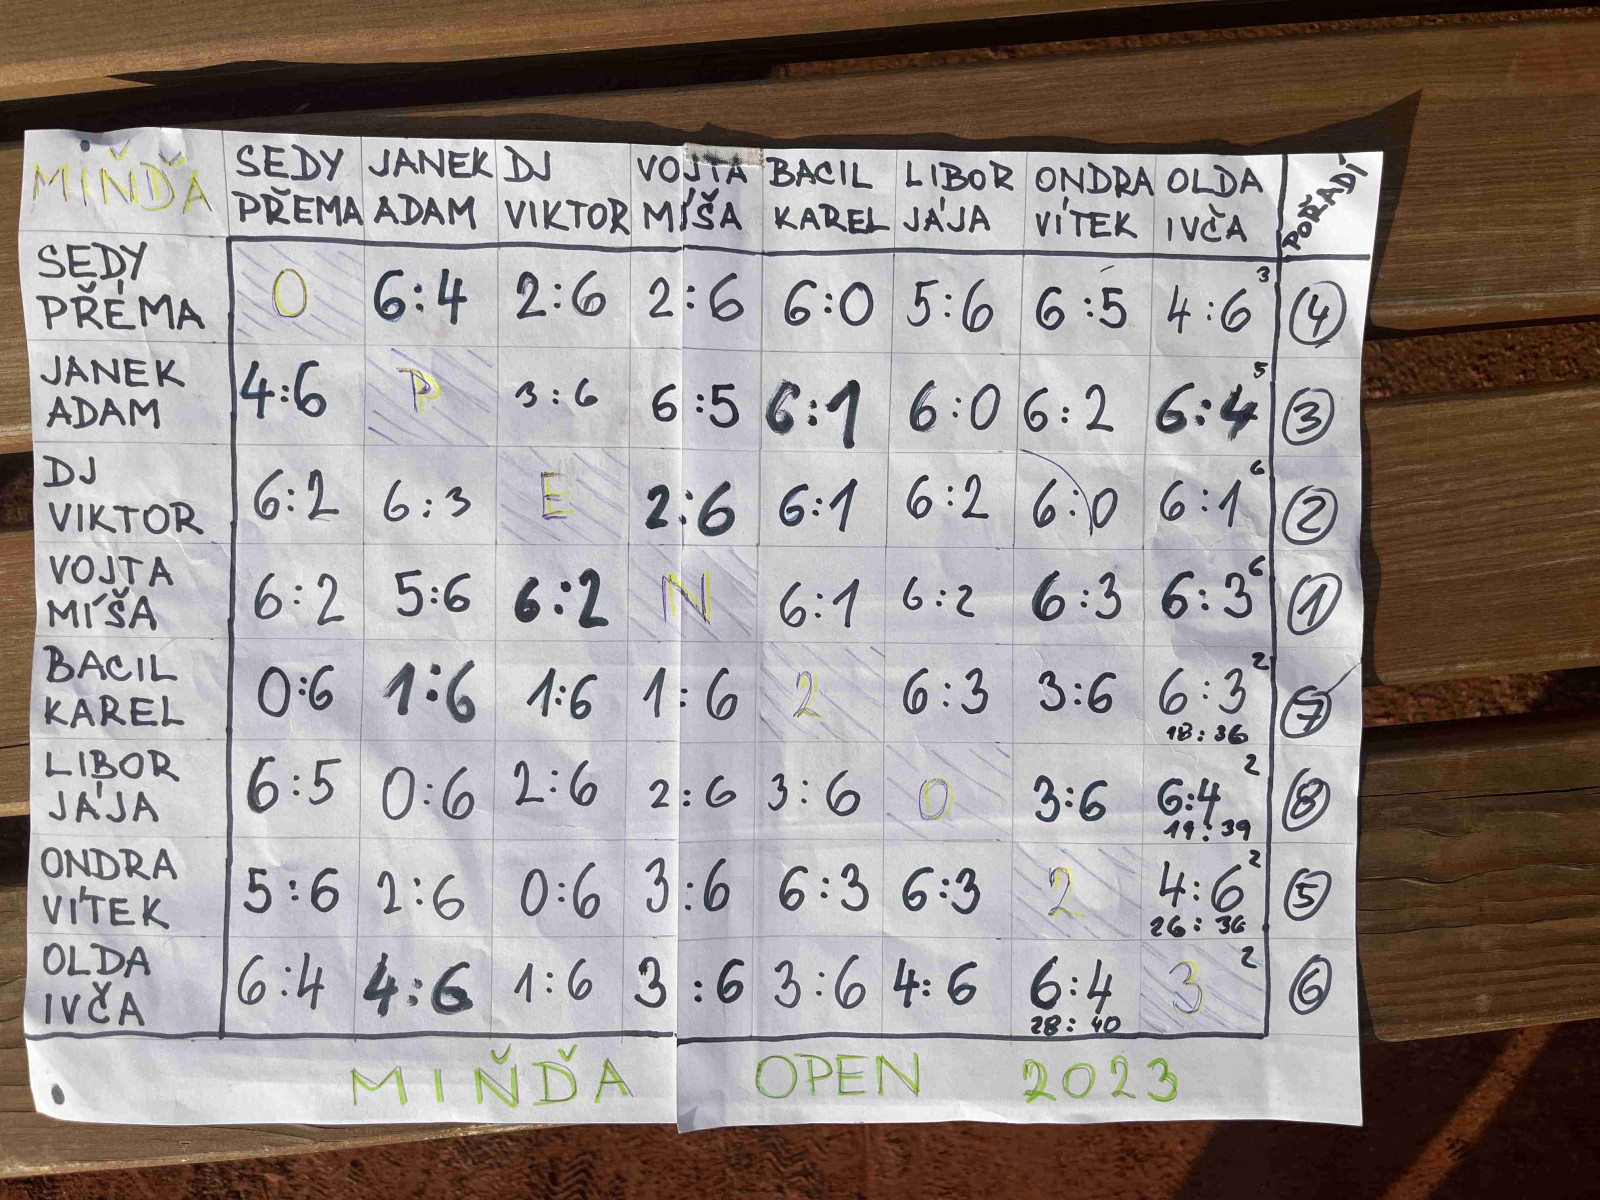 MIŇĎA SEDY PŘEMA JANEK ADAM DJ VIKTOR VOJTA MÍŠA BACIL KAREL LIBOR JÁJA ONDRA VÍTEK OLDA IVČA POŘADÍ
SEDY PŘEMA O 6:4 2:6 2:6 6:0 5:6 6:5 4:6 3 4
JANEK ADAM 4:6 P 3:6 6:5 6:1 6:0 6:2 6:4 5 3
DJ VIKTOR 6:2 6:3 E 2:6 6:1 6:2 6:0 6:1 6 2
VOJTA MÍŠA 6:2 5:6 6:2 N 6:1 6:2 6:3 6:3 6 1
BACIL KAREL 0:6 1:6 1:6 1:6 2 6:3 3:6 6:3 2 18:36 7
LIBOR JÁJA 6:5 0:6 2:6 2:6 3:6 0 3:6 6:4 2 19:39 8
ONDRA VÍTEK 5:6 2:6 0:6 3:6 6:3 6:3 2 4:6 2 26:36 5
OLDA IVČA 6:4 4:6 1:6 3:6 3:6 4:6 6:4 28:40 3 2 6
MIŇĎA OPEN 2023